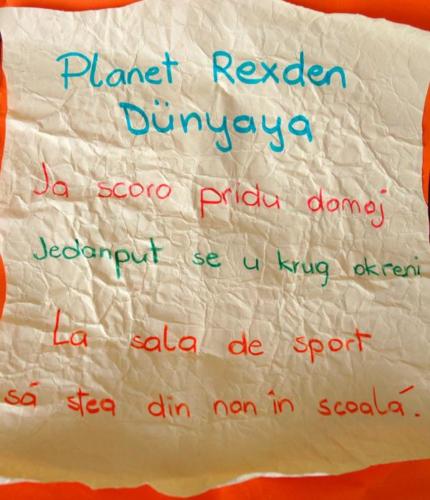 Planet Rexden
Dünyaya
Ja scoro pridu domoj
Jedanput se u krug okreni
La sala de sport
sá stea din non în scoalá.